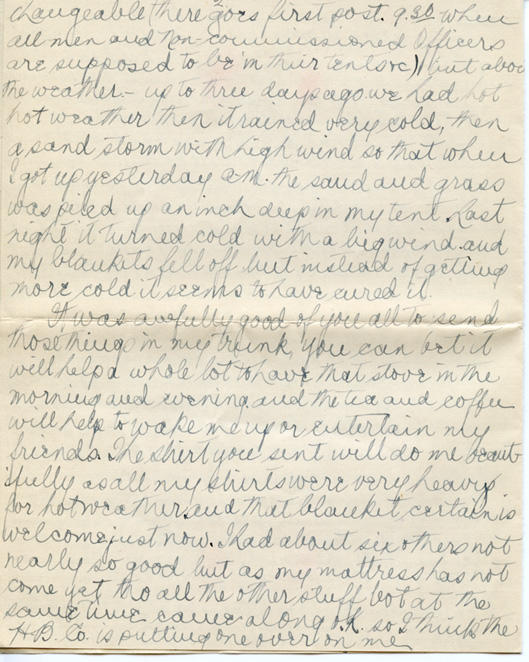 changeable (there goes first post. 9.30 when
all men and non-commissioned Officers
are supposed to be in their tents &c)) but about
the weather - up to three days ago we had hot
hot weather then it rained very cold, then
a sand storm with high wind so that when
I got up yesterday am. the sand and grass
was piled up an inch deep in my tent. Last
night it turned cold with a big wind and
my blankets fell off but instead of getting
more cold it seems to have cured it.
It was awfully good of you all to send
those things in my trunk, you can bet it
will help a whole lot to have that stove in the
morning and evening and the tea and coffee
will help to wake me up or entertain my
friends. The shirt you sent will do me beaut-
ifully as all my shirts were very heavy
for hot weather and that blanket certain is
welcome just now. I had about six others not
nearly so good but as my mattress has not
come yet tho all the other stuff bot at the
same time came along ok. so I think the
H.B. Co. is putting one over on me